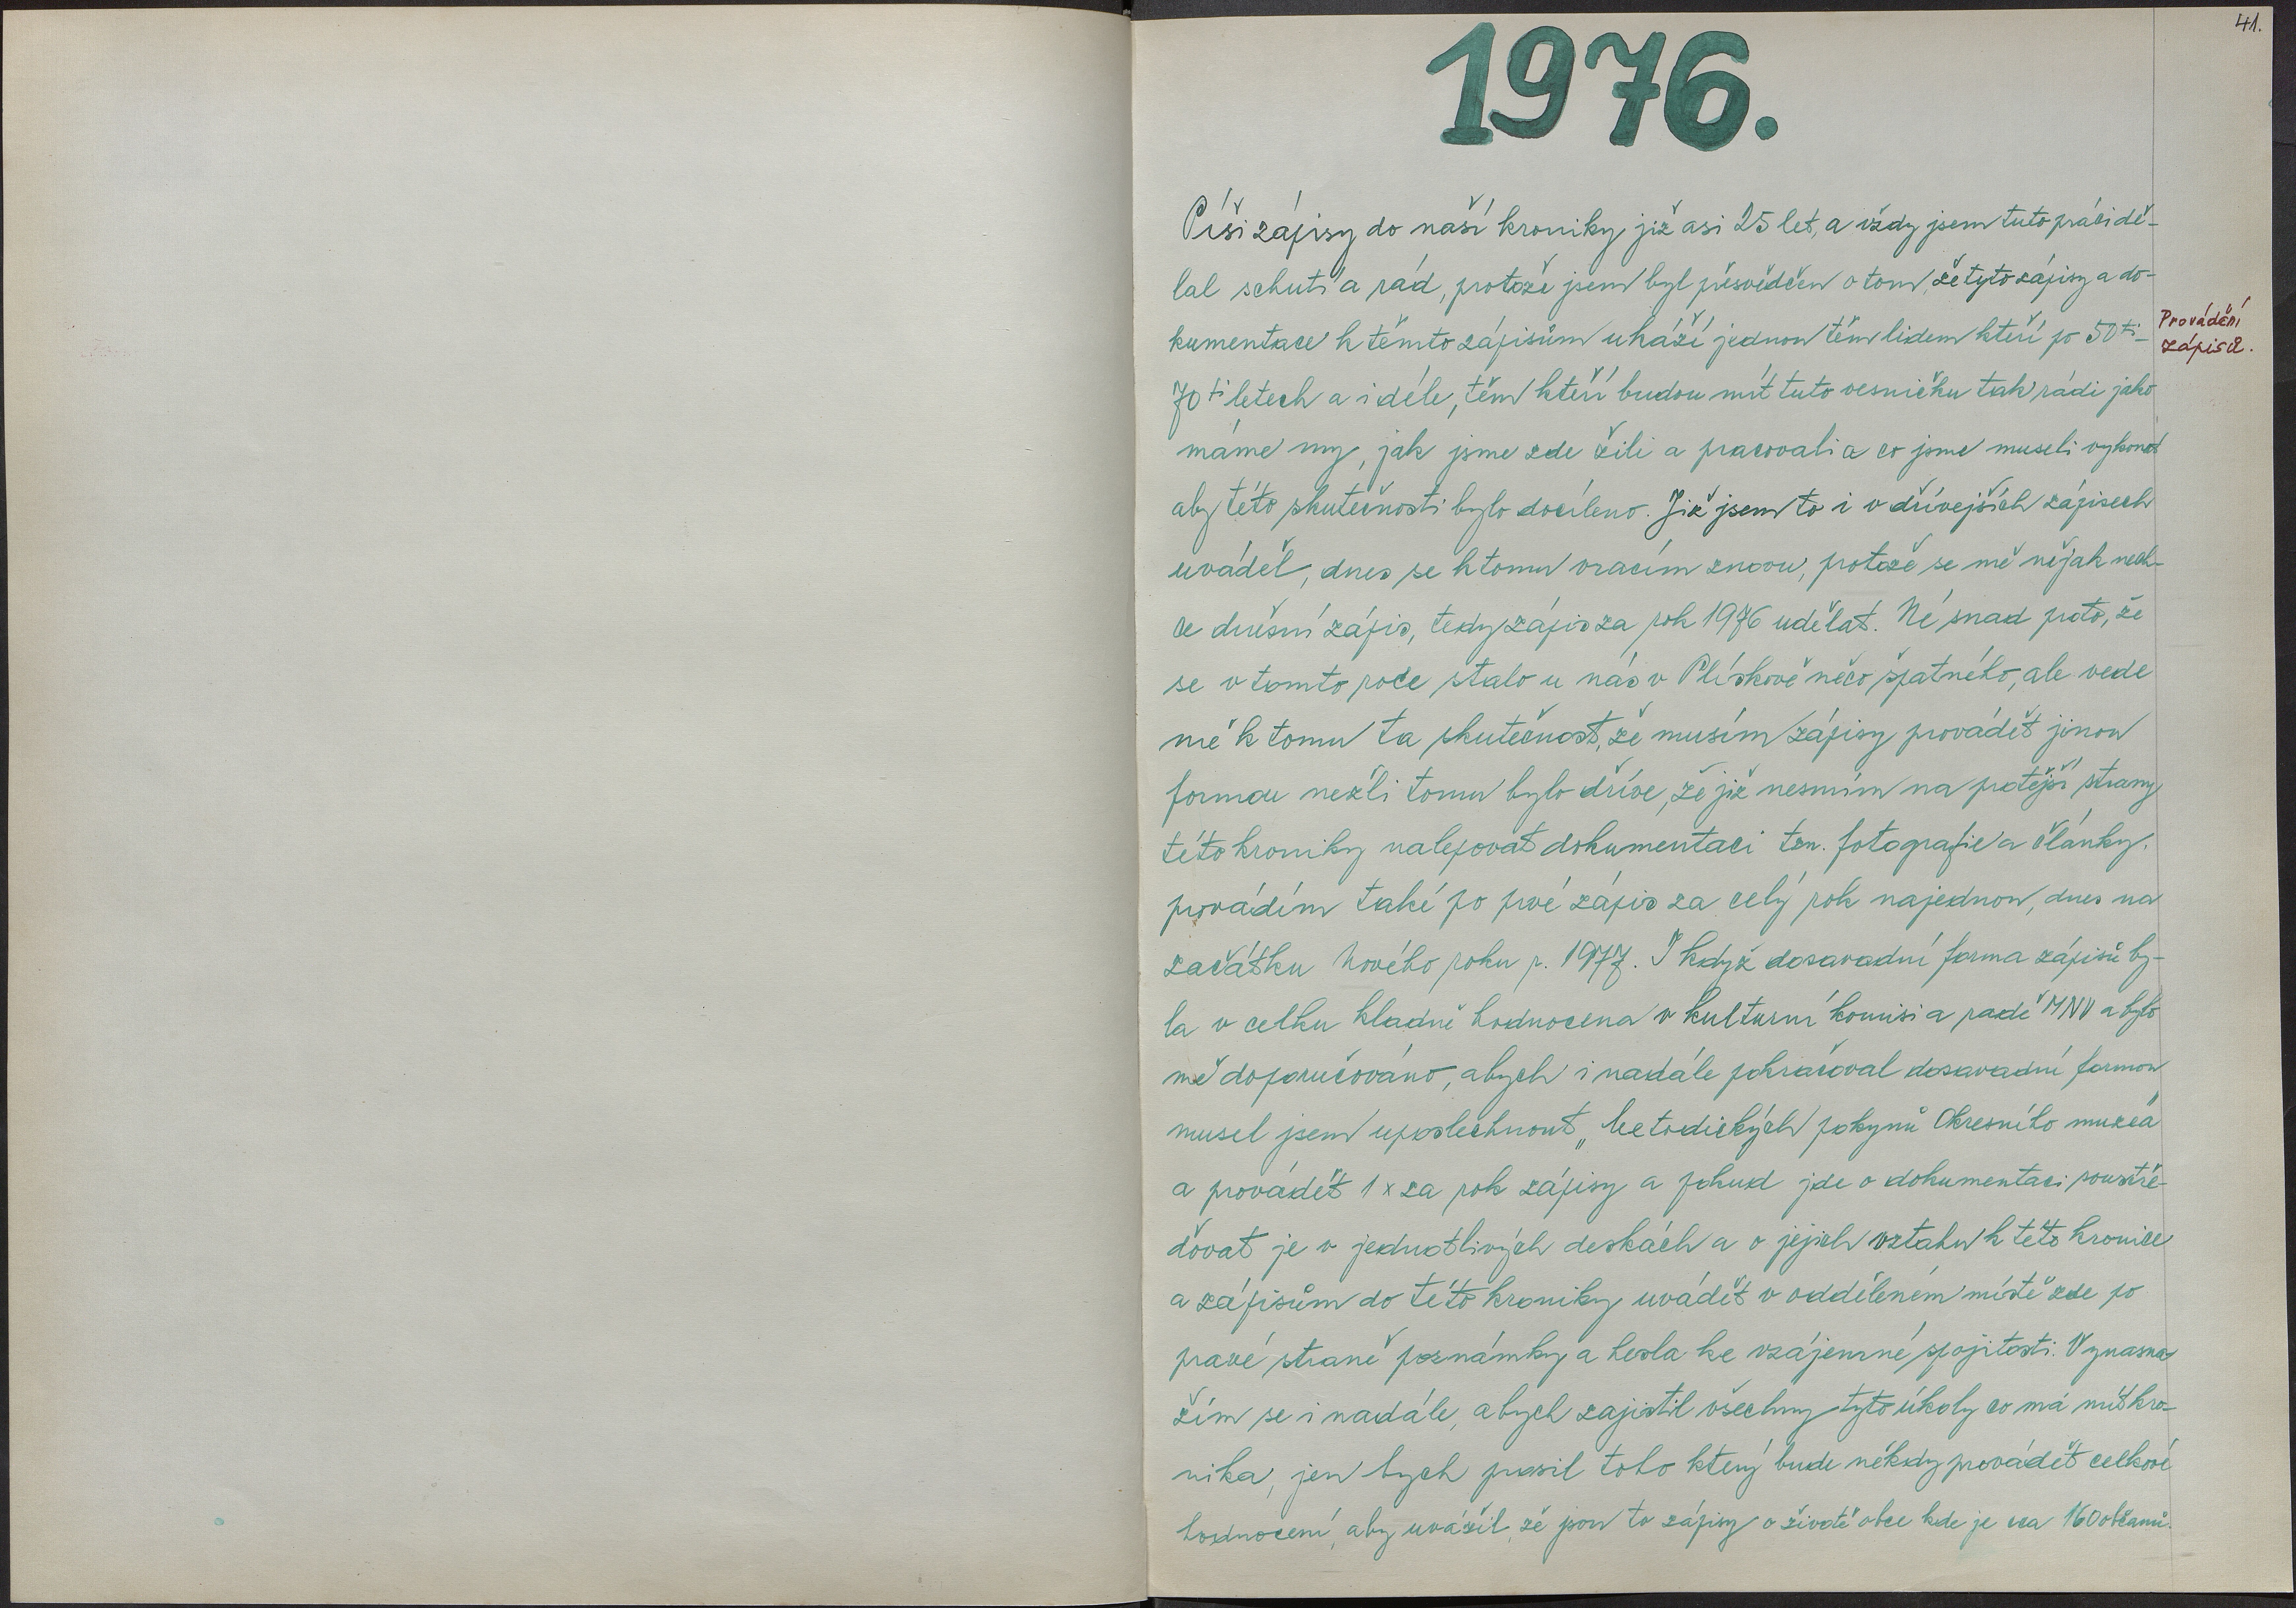 41.
1976.
Píši zápisy do naší kroniky již asi 25 let, a vždy jsem tuto práci dě-
lal schutí a rád, protože jsem byl přesvědčen o tom, že tyto zápisy a do-
kumentace k těmto zápisům ukáží jednou těm lidem kteří po 50ti-
Provádění
zápisů.
70ti letech a i déle, těm kteří budou mít tuto vesničku tak rádi jako
máme my, jak jsme zde žili a pracovali a co jsme museli vykonat
aby této skutečnosti bylo docíleno. Již jsem to i v dřívejších zápisech
uváděl, dnes se k tomu vracím znovu, protože se mě nějak nech-
ce dnešní zápis, tedy zápis za rok 1976 udělat. Né snad proto, že
se v tomto roce stalo u nás v Plískově něco špatného, ale vede
mě k tomu ta skutečnost, že musím zápisy provádět jinou
formou nežli tomu bylo dříve, že již nesmím na protější strany
této kroniky nalepovat dokumentaci tzn. fotografie a články.
provádím také po prvé zápis za celý rok najednou, dnes na
začátku Nového roku r. 1977. I když dosavadní forma zápisů by-
la v celku kladně hodnocena v kulturní komisi a radě MNV a bylo
mě doporučováno, abych i nadále pokračoval dosavadní formou
musel jsem uposlechnout „Metodických pokynů Okresního muzea"
a provádět 1x za rok zápisy a pokud jde o dokumentaci soustře-
ďovat je v jednotlivých deskách a o jejich vztahu k této kronice
a zápisům do této kroniky uvádět v odděleném místě zde po
pravé straně poznámky a hesla ke vzájemné spojitosti. Vynasna-
žím se i nadále, abych zajistil všechny tyto úkoly co má mít kro-
nika, jen bych prosil toho který bude někdy provádět celkové
hodnocení, aby uvážil, že jsou to zápisy o životě obce kde je cca 160 občanů.